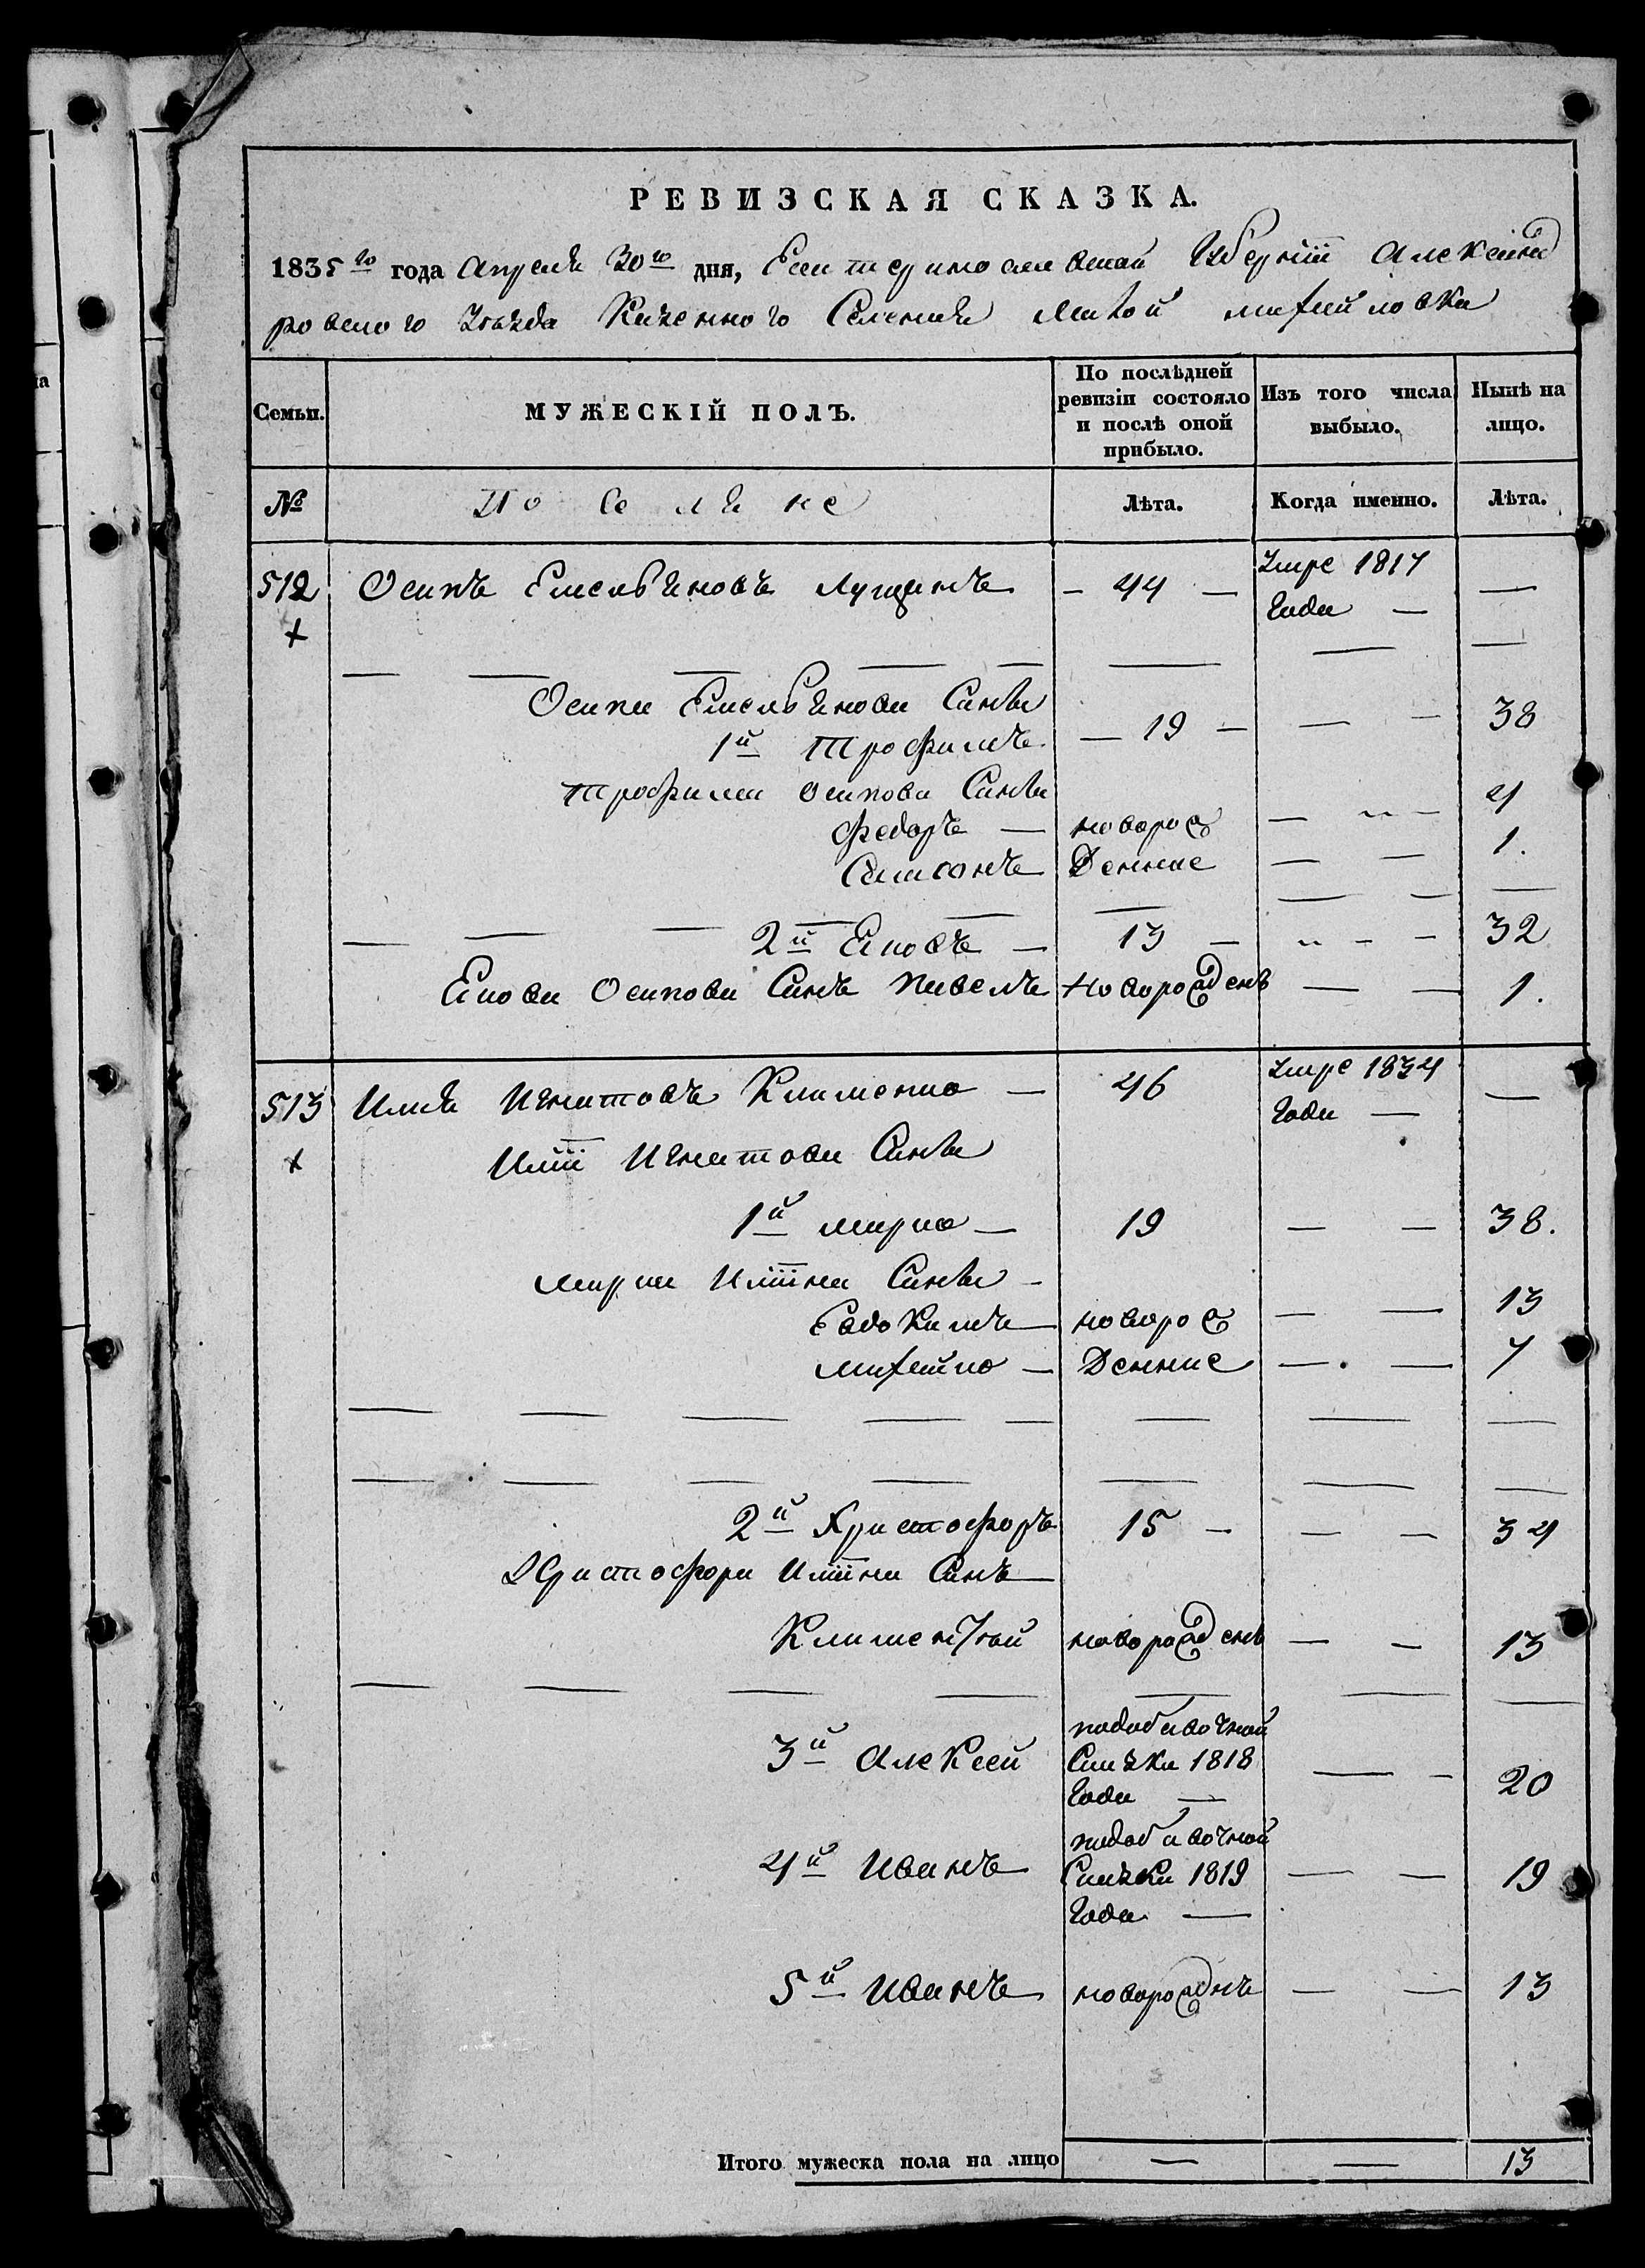 РЕВИЗСКАЯ СКАЗКА.
1835го года Апреля 30го дня, Екатеринославской Губерніи Александ
ровского Уъзда Казенного Селенія Малой Михайловки
Семьи.
МУЖЕСКІЙ ПОЛЪ.
По послѣдней ревизіи состояло и послѣ оной прибыло.
Изъ того числа выбыло.
Нынѣ на лицо.
№
Поселяне
Лѣта.
Когда именно.
Лѣта.
512 Осипъ Емельяновъ Лущинъ — 44 — Умре 1817 Года — —
Осипа Емельянова Сины
1й Трофимъ — 19 — — — 38
Трофима Осипова Сины
Федоръ — новорож — — 4
Самсонъ Денние — — 1.
2й Яковъ — 13 — — — 32
Якова Осипова Синъ Павелъ Новорожденъ — — 1.
513 Илія Игнатовъ Клименко — 46 Умре 1834 Года — —
Иліи Игнатова Сины
1й Марко — 19 — — 38.
Марка Иліина Сины —
Евдокимъ новорож — — 13
Михайло — Денние — — 7
2й Христофоръ 15 — — — 34
Христофора Иліина Синъ
Климентій новорожденъ — — 13
3й Алексей
подобавочной
Сказки 1818
Года — — — 20
4й Иванъ
подобавочной
Сказки 1819
Года — — — 19
5й Иванъ новорожднъ — — 13
Итого мужеска пола на лицо — — 13